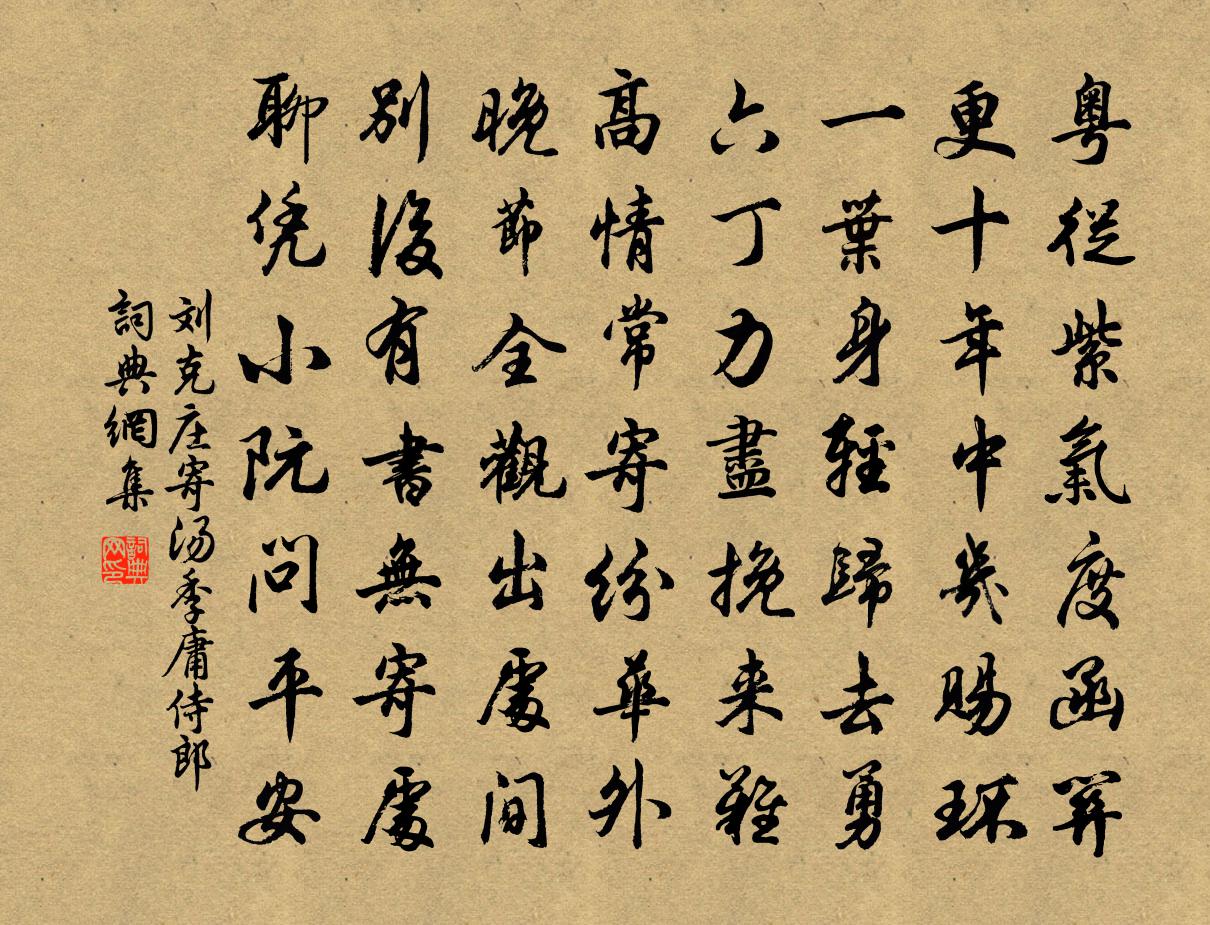 粵從紫氣度函關
更十年中幾賜環
一葉身輕歸去勇
六丁力盡挽来難
高情常寄紛華外
晚節全觀出處間
別後有書無寄處
聊凭小阮問平安
刘克庄寄汤季庸侍郎
詞典網集
詞典网印